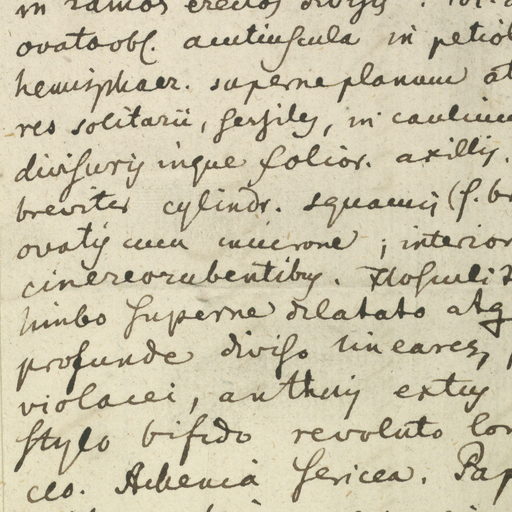 in ramos erectos divisus.
ovatoobl. acutiuscula in petiol
hemisphaer. superne planum at
res solitarii, sessiles, in caulium
divisuris inque folior. axillis.
breviter cylindr. squamis (s. br
ovatis cum mucrone ; interior
cinereorubentibus. Flosculi
limbo superne dilatato atq
profunde diviso lineares,
violacei, antheris extus
stylo bifido revoluto lon
ceo. Achenia sericea. Pap